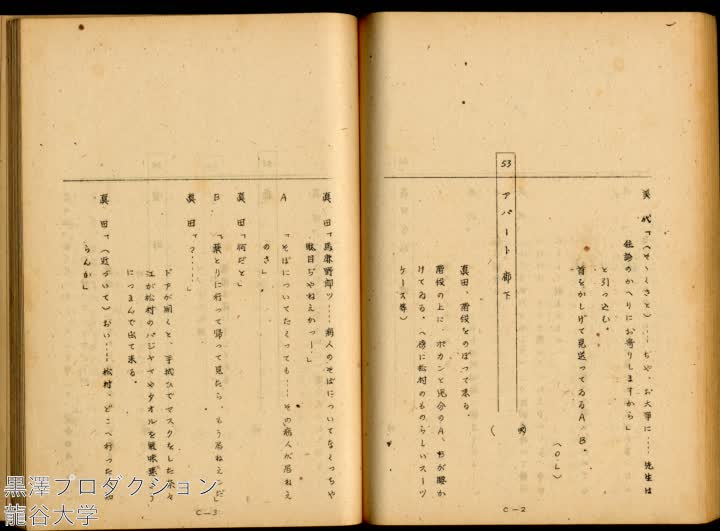 美代「（へそ〱さと）……ぢや、お大事に……先生は
往診のかへりにお寄りしますから」
と引っ込む。
首をかしげて見送ってゐるA、B。
（OL）
53 アパート 廊下
（夜）
眞田、階段をのぼつて来る。
階段の上に、ポカンと児分のA、Bが腰か
けてゐる。（傍に松村のものらしいスーツ
ケース等）
C－2
眞田「馬鹿野郎ッ……病人のそばについてなくっちや
駄目ぢやねえかっ！」
A「そばについてたくっても……その病人が居ねえ
のさ」
眞田「何だと」
B「薬とりに行って帰って見たら、もう居ねえんだ」
眞田「？……」
ドアが開くと、手拭ひでマスクをした
が松村のパジヤマやタオルを
につまんで出て来る。
眞田「（近づいて）おい……松村、どこへ行った
らんか」
C－3
黒澤プロダクション
龍谷大学